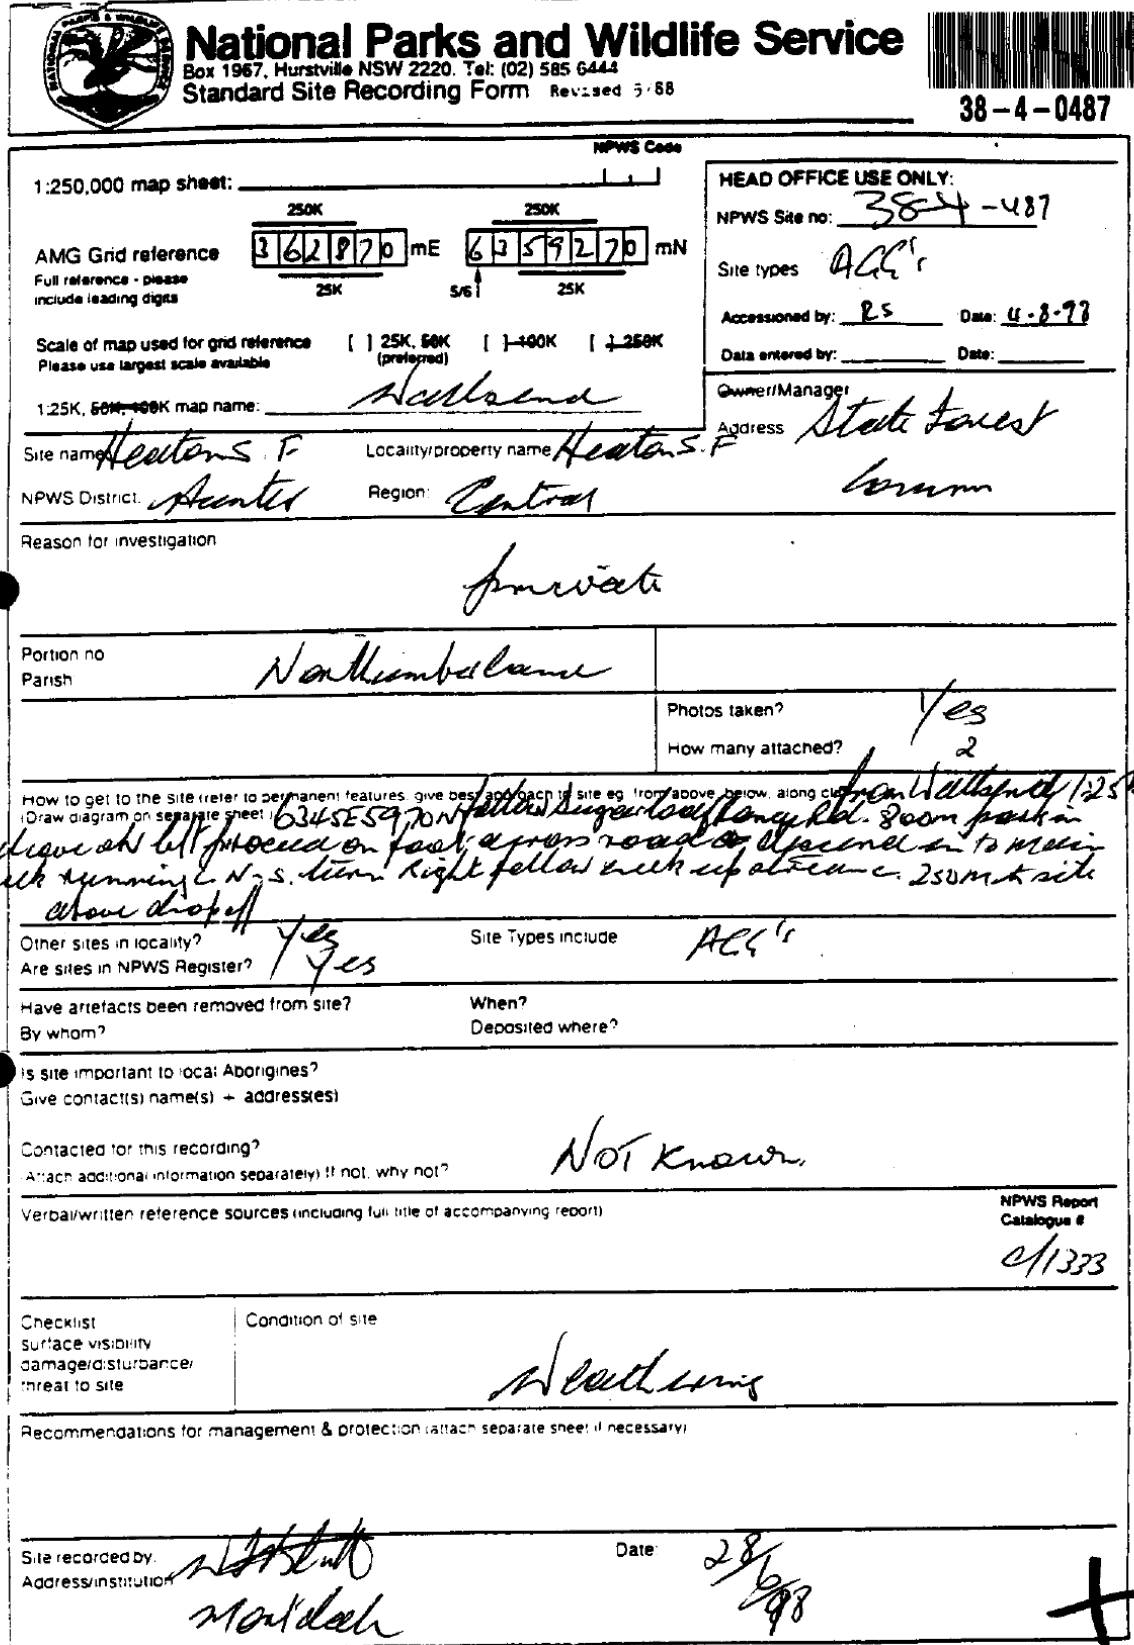 NATIONAL PARKS & WILDLIFE SERVICE
National Parks and Wildlife Service
Box 1967, Hurstville NSW 2220. Tel: (02) 585 6444
Standard Site Recording Form Revised 5/88
38-4-0487
NPWS Code
1:250,000 map sheet:
HEAD OFFICE USE ONLY:
NPWS Site no: 38-4-487
250K 250K
AMG Grid reference 362870 mE 6359270 mN
Full reference - please
include leading digits
25K 5/6 25K
Site types AGG's
Accessioned by: RS Date: 4-8-98
Scale of map used for grid reference [ ] 25K, 50K [ ] 100K [ ] 250K
Please use largest scale available (preferred)
Data entered by: Date:
1:25K, 50K, 100K map name: Wallsend
Owner/Manager
Address State Forest
Comm
Site name Heaton S.F Locality/property name Heaton S.F
NPWS District: Hunter Region: Central
Reason for investigation
private
Portion no
Parish Northumberland
Photos taken? Yes
How many attached? 2
How to get to the site (refer to permanent features, give best approach to site eg. from above, below, along
(Draw diagram on separate sheet)
from Wallsend 1:25
6345E5970N follow Sugarloaf Range Rd. 800m park in
left proceed on foot across road descend in to main
running N-S. turn Right follow creek upstream 250m to site
above drop off
Other sites in locality? Yes Site Types include AGG's
Are sites in NPWS Register? Yes
Have artefacts been removed from site? When?
By whom? Deposited where?
Is site important to local Aborigines?
Give contact(s) name(s) + address(es)
Contacted for this recording?
Attach additional information separately) If not, why not? NOT Known.
Verbal/written reference sources (including full title of accompanying report)
NPWS Report
Catalogue #
C/1333
Checklist
surface visibility
damage/disturbance/
threat to site
Condition of site
Weathering
Recommendations for management & protection (attach separate sheet if necessary)
Site recorded by:
Address/institution
Date: 28/6/98